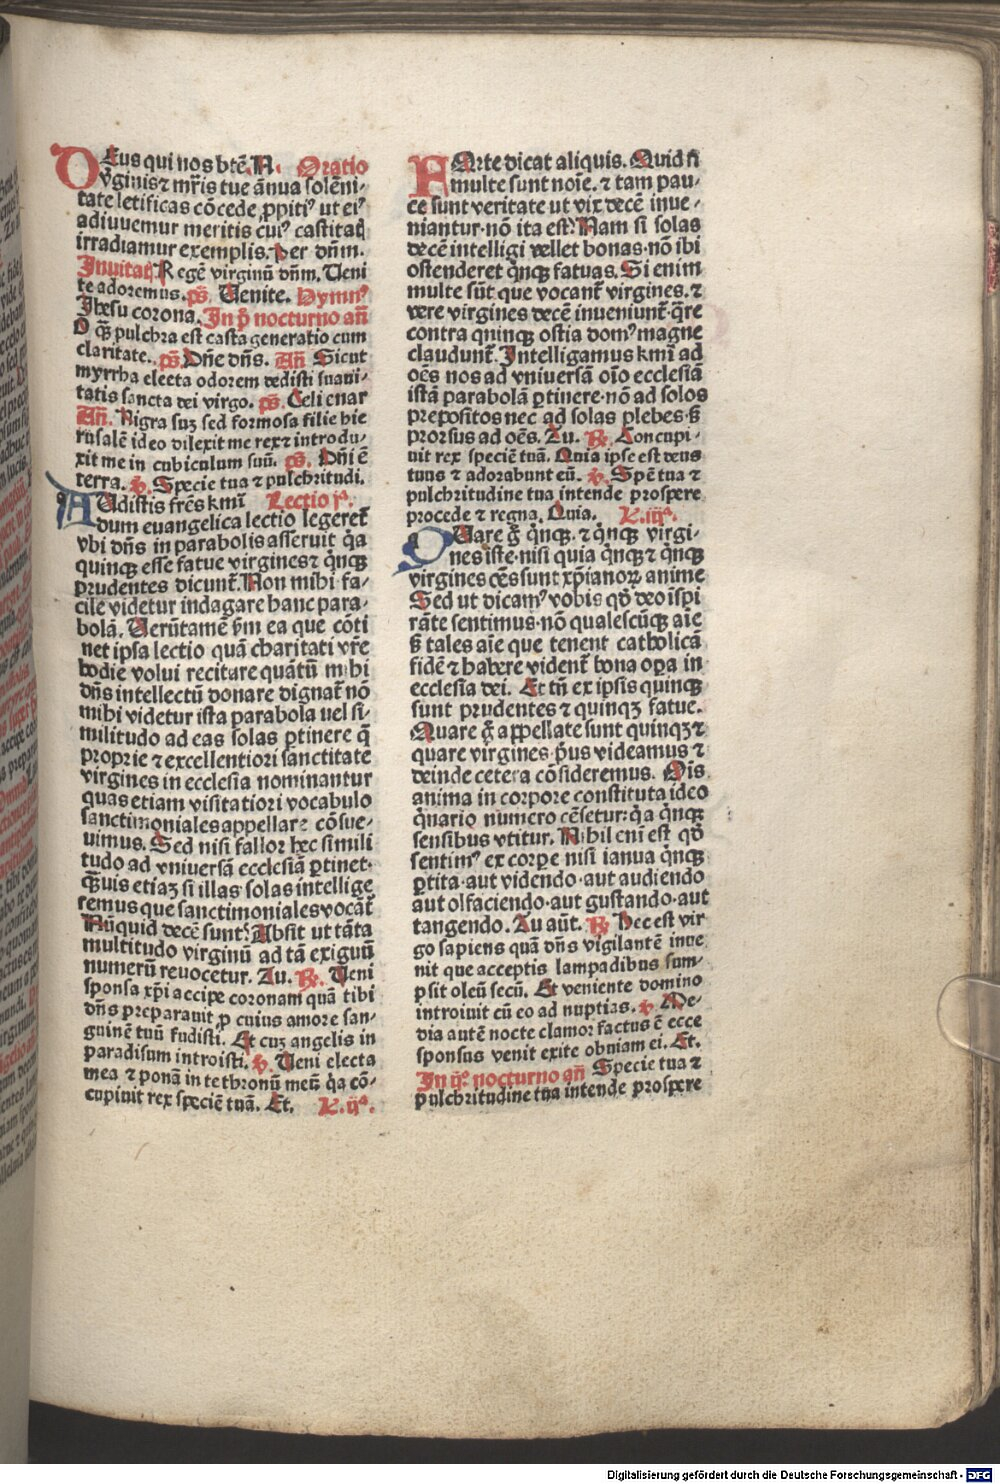 DEus qui nos btē. N. Oratio
v̄ginis ⁊ mr̄is tue ānua solēni-
tate letificas cōcede ꝓpiti⁹ ut ei⁹
adiuuemur meritis cui⁹ castitatꝭ
irradiamur exemplis. Per dn̄m.
Inuitatꝭ Regē virginū dn̄m. Ueni
te adoremus. ps̄. Uenite. Hymn⁹
Ihesu corona. In p̄ nocturno an̄
O qꝫ pulchra est casta generatio cum
claritate. ps̄. Dn̄e dn̄s. An̄ Sicut
myrrha electa odorem dedisti suaui-
tatis sancta dei virgo. ps̄. Celi enar
An̄. Nigra suꝫ sed formosa filie hie
rusalē ideo dilexit me rex ⁊ introdu-
xit me in cubiculum suū. ps̄. Dn̄i ē
terra. ℣. Specie tua ⁊ pulchritudi.
AUdistis fr̄es kmī Lectio j.ª
dum euangelica lectio legeret̄
vbi dn̄s in parabolis asseruit q̇a
quinqꝫ esse fatue virgines ⁊ q̇nqꝫ
prudentes dicunt̄. Non mihi fa-
cile videtur indagare hanc para-
bolā. Uerūtamē s̄m ea que cōti
net ipsa lectio quā charitati vr̄e
hodie volui recitare quātū mihi
dn̄s intellectū donare dignat̄ nō
mihi videtur ista parabola uel si-
militudo ad eas solas ꝑtinere q̄
proprie ⁊ excellentiori sanctitate
virgines in ecclesia nominantur
quas etiam visitatiori vocabulo
sanctimoniales appellare cōsue-
uimus. Sed nisi fallor hec simili
tudo ad vniuersā ecclesiā ꝑtinet·
Qꝫuis etiaꝫ si illas solas intellige
remus que sanctimoniales vocāt̄
Nūquid decē sunt? Absit ut tāta
multitudo virginū ad tā exiguū
numerū reuocetur. Tu. ℟. Ueni
sponsa xp̄i accipe coronam quā tibi
dn̄s preparauit ꝓ cuius amore san-
guinē tuū fudisti. Et cuꝫ angelis in
paradisum introisti. ℣. Ueni electa
mea ⁊ ponā in te thronū meū q̇a cō-
cupiuit rex speciē tuā. Et. L. ij.ª.
FOrte dicat aliquis. Quid n̄
multe sunt noīe. ⁊ tam pau-
ce sunt veritate ut vix decē inue-
niantur· nō ita est? Nam si solas
decē intelligi vellet bonas· nō ibi
ostenderet q̇nqꝫ fatuas. Si enim
multe sūt que vocant̄ virgines. ⁊
vere virgines decē inueniunt· q̄re
contra quinqꝫ ostia dom⁹ magne
claudunt̄. Intelligamus kmī ad
oēs nos ad vniuersā oīo ecclesiā
istā parabolā ꝑtinere· nō ad solos
prepositos nec ad solas plebes· s̄
prorsus ad oēs. Tu. ℟. Concupi-
uit rex speciē tuā. Quia ipse est deus
tuus ⁊ adorabunt eū. ℣. Spē tua ⁊
pulchritudine tua intende prospere
procede ⁊ regna. Quia. L. iij.ª.
QUare g̊ q̇nqꝫ. ⁊ q̇nqꝫ virgi-
nes iste· nisi quia q̇nqꝫ ⁊ q̇nqꝫ
virgines oēs sunt xp̄ianoꝝ anime
Sed ut dicam⁹ vobis qd̄ deo ispi
rāte sentimus· nō qualescūqꝫ aīe
s̄ tales aīe que tenent catholicā
fidē ⁊ habere vident̄ bona oꝑa in
ecclesia dei. Et tn̄ ex ipsis quinqꝫ
sunt prudentes ⁊ quinqꝫ fatue.
Quare g̊ appellate sunt quinqꝫ ⁊
quare virgines p̄us videamus ⁊
deinde cetera cōsideremus. Oīs
anima in corpore constituta ideo
q̇nario numero cēsetur: q̇a q̇nqꝫ
sensibus vtitur. Nihil enī est qd̄
sentim⁹ ex corpe nisi ianua q̇nqꝫ
ꝑtita· aut videndo· aut audiendo
aut olfaciendo· aut gustando· aut
tangendo. Tu aūt. ℟. Hec est vir
go sapiens quā dn̄s vigilantē inue
nit que acceptis lampadibus sum-
psit oleū secū. Et veniente domino
introiuit cū eo ad nuptias. ℣. Me-
dia autē nocte clamor factus ē ecce
sponsus venit exite obuiam ei. Et.
In ij.º nocturno an̄ Specie tua ⁊
pulchritudine tua intende prospere
Digitalisierung gefördert durch die Deutsche Forschungsgemeinschaft - DFG